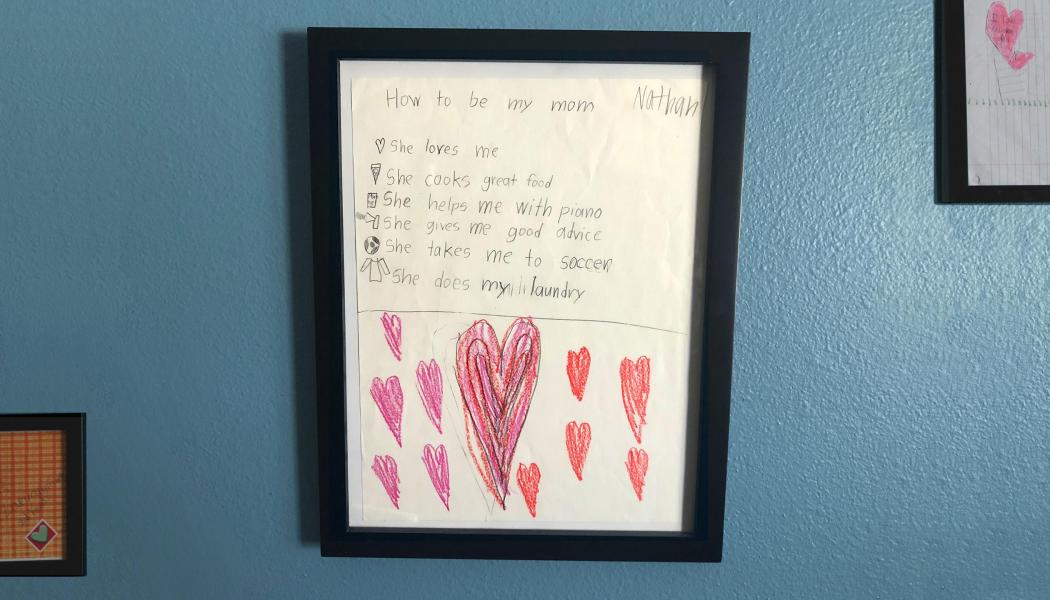 How to be my mom Nathan
She loves me
She cooks great food
She helps me with piano
She gives me good advice
She takes me to soccer
She does my laundry